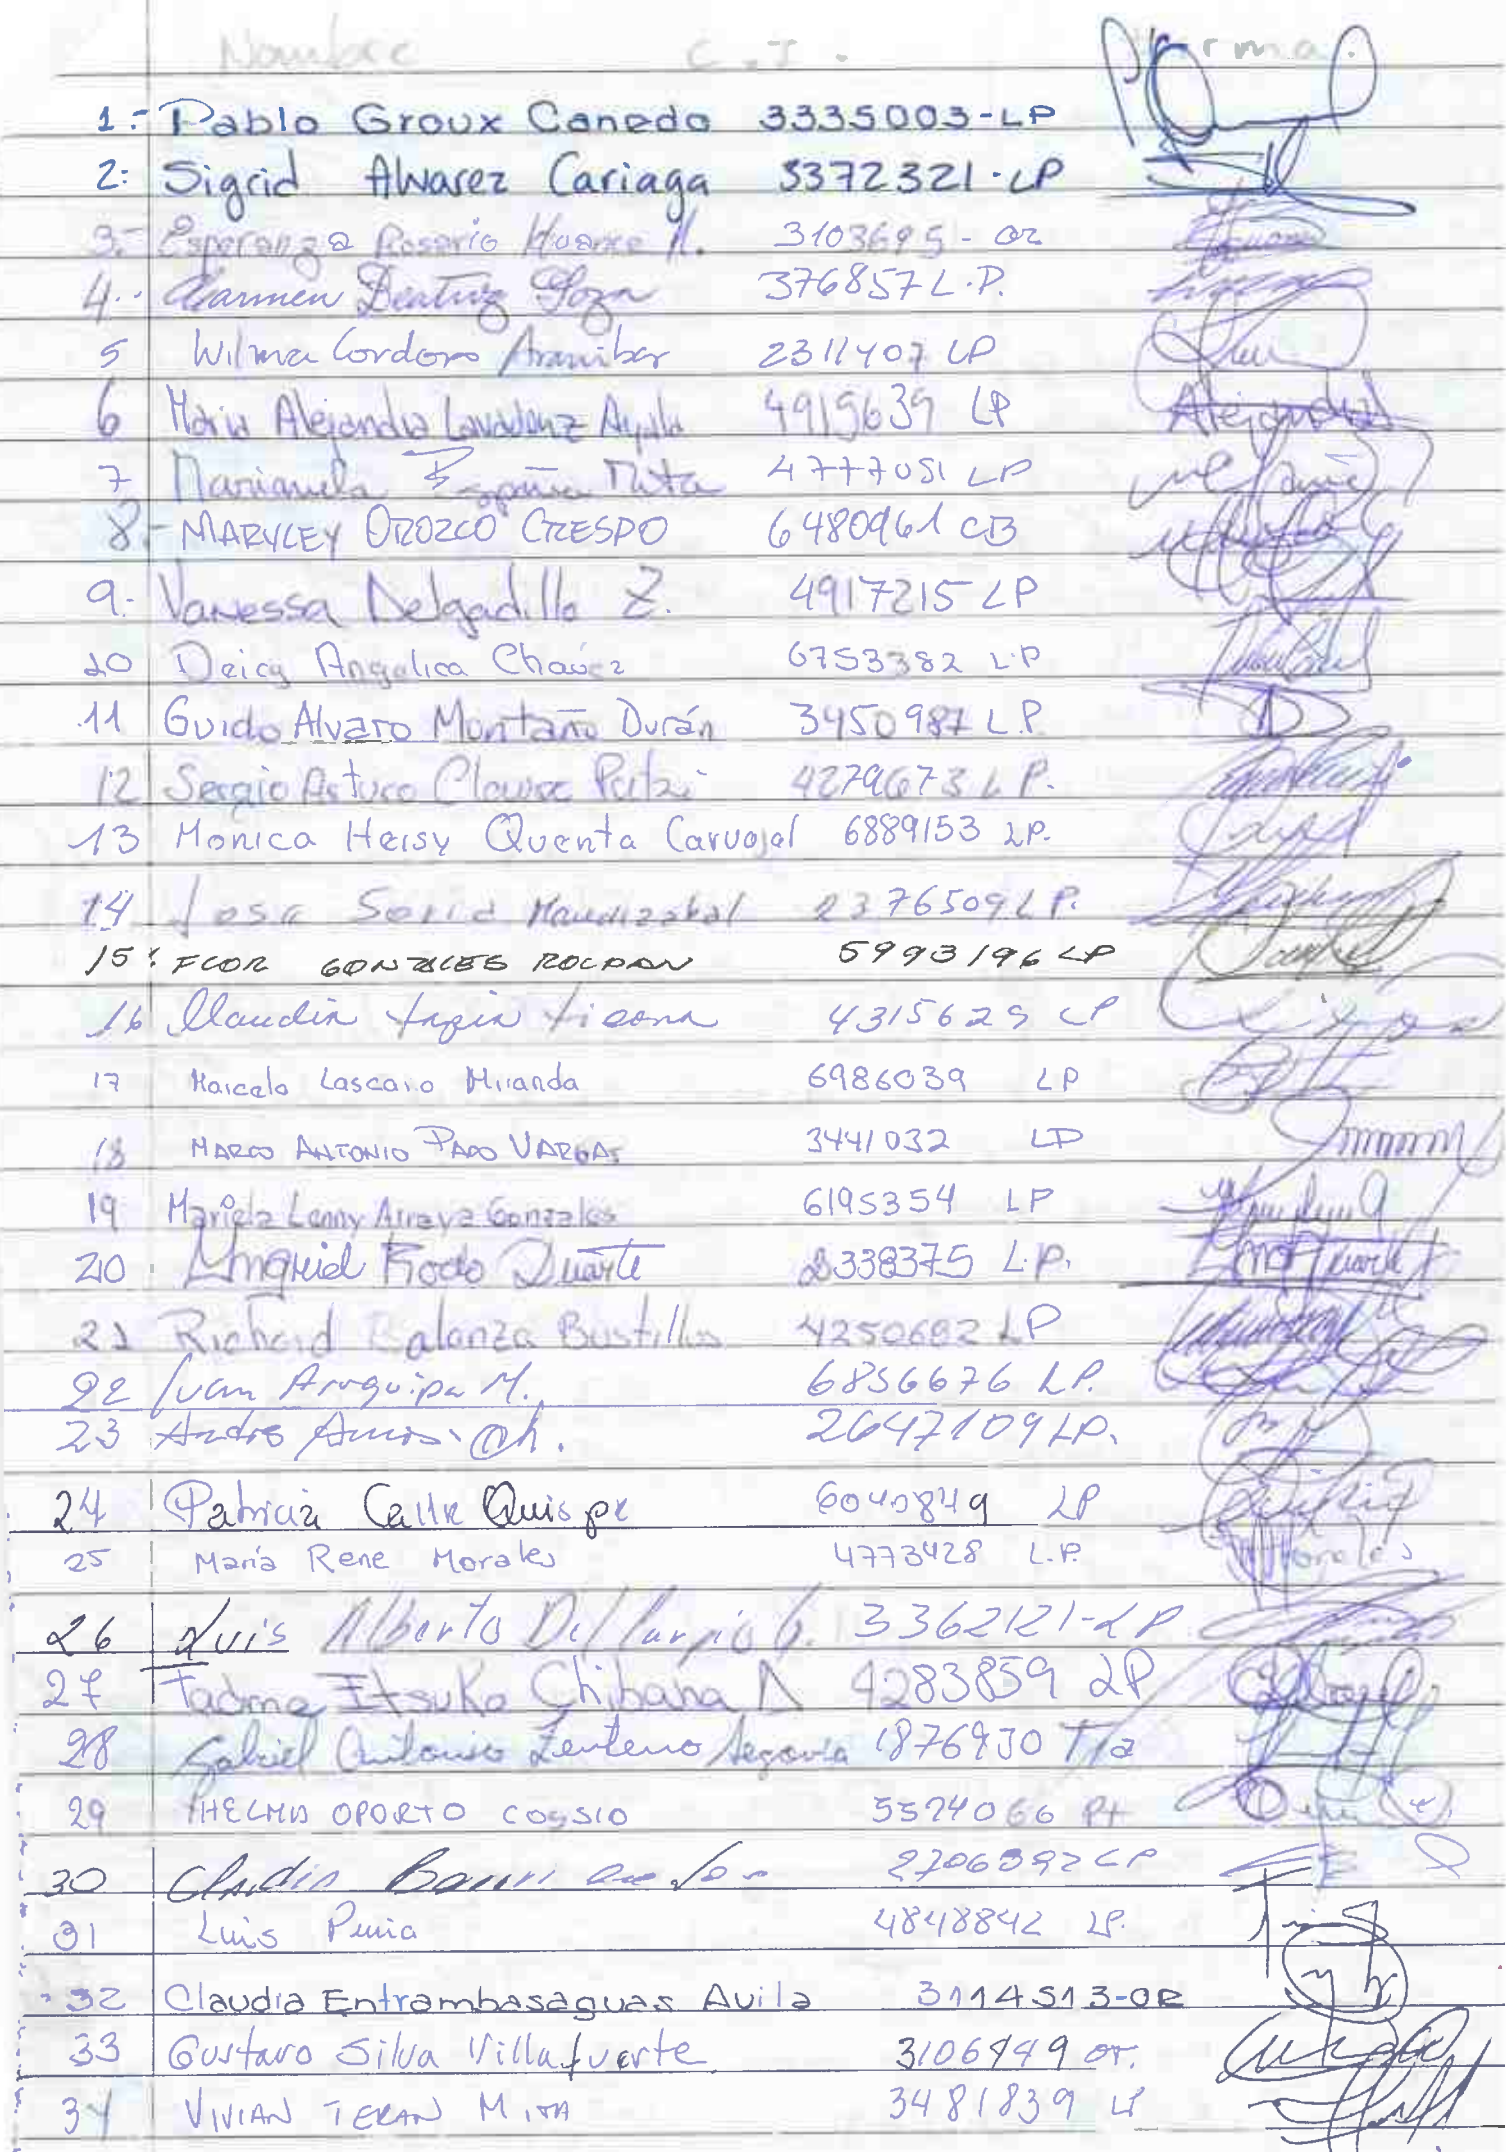 Nombre C.I. Firma.
1.- Pablo Groux Canedo 3335003-LP
2.- Sigrid Alvarez Cariaga 3372321-LP
3.- Esperanza Rosario Huanca H. 3103695-OR
4.- Carmen Beatriz Loza 376857 L.P.
5 Wilma Cordoro Aranibar 2311407 LP
6 Maria Alejandra Lavadenz Ayala 4915639 LP Alejandra
7 Marianela España Mita 4777051 LP
8.- MARYLEY OROZCO CRESPO 6480961 CB
9.- Vanessa Delgadillo Z. 4917215 LP
10 Deicy Angelica Chavez 6753382 L.P
11 Guido Alvaro Montaño Durán 3450987 L.P.
12 Sergio Arturo Claure 4279673 L P.
13 Monica Heisy Quenta Carvajal 6889153 LP.
14 Jose Soria Mendizabal 2376509 LP.
15: FLOR GONZALES ROLDAN 5993196 LP
16 Claudia Tapia 4315625 LP
17 Marcelo Lascano Miranda 6986039 LP
18 MARCO ANTONIO PARO VARGAS 3441032 LP
19 Mariela Lenny Arraya Gonzales 6195354 LP
20 Rodo Duarte 2338375 L.P.
21 Richard Balanza Bustillos 4250682 LP
22 Ivan Aruquipa M. 6856676 LP.
23 Ch. 2647109 LP.
24 Patricia Calle Quispe 6040849 LP
25 Maria Rene Morales 4773428 L.P. Morales
26 Luis Alberto Del Carpio G. 3362121-LP
27 Tadma Itsuko Chibana A 4283859 LP
28 Gabriel Antonio Zenteno Segovia 1876930 Tja
29 THELMA OPORTO COSSIO 5524066 Pt
30 Claudia 2706392 LP
31 Luis Pinia 4848842 LP.
32 Claudia Entrambasaguas Avila 3114513-OR
33 Gustavo Silva Villafuerte 3106449 or.
34 VIVIAN TERAN MITA 3481839 LP